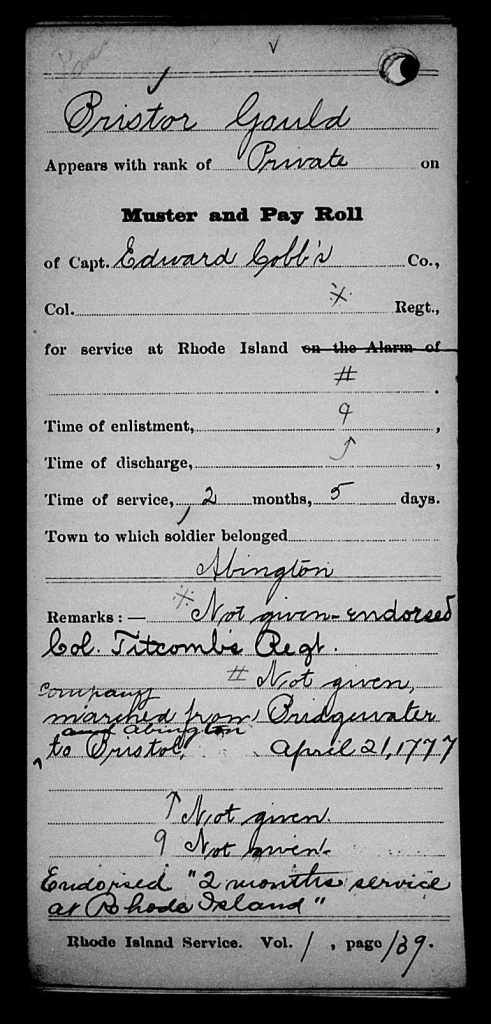 Bristor Gould
Appears with rank of Private on
Muster and Pay Roll
of Capt. Edward Cobb's Co.,
Col. ※ Regt.,
for service at Rhode Island on the Alarm of
# .
Time of enlistment, 9 ,
Time of discharge, ↑ ,
Time of service, 2 months, 5 days.
Town to which soldier belonged
Abington
Remarks: — ※ Not given - endorsed
Col. Titcomb's Regt.
# Not given,
company
marched from Bridgewater
and Abington
^ to Bristol, April 21, 1777
↑ Not given.
9 Not given.
Endorsed "2 months service
at Rhode Island"
Rhode Island Service. Vol. 1, page 139.